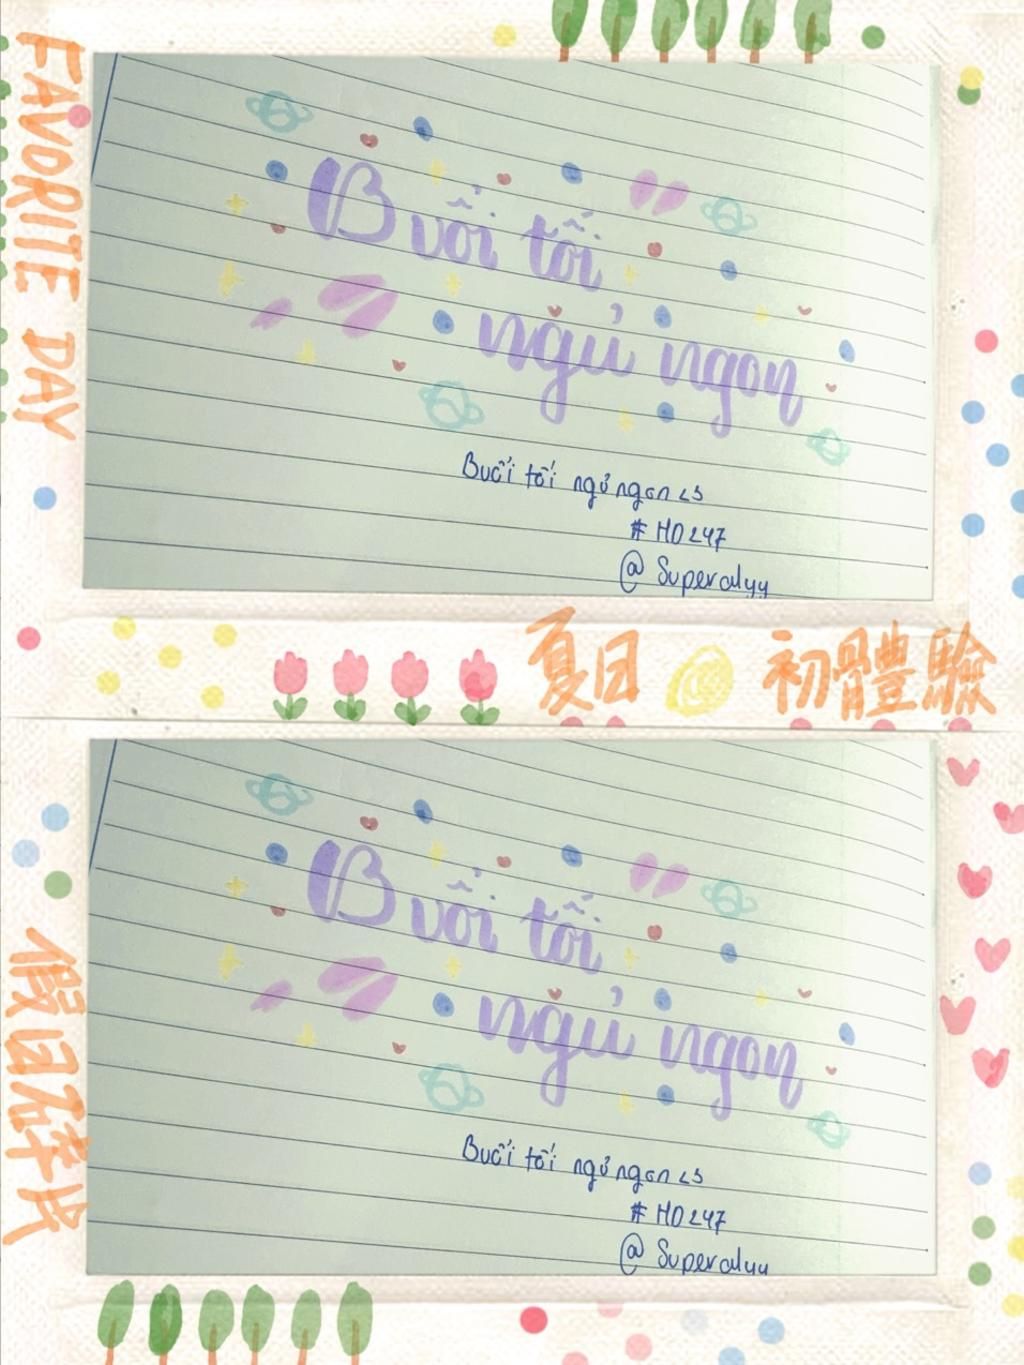 FAVORITE DAY
Buổi tối
ngủ ngon
Buối tối ngủ ngon <3
#HD247
@Superalyy
夏日 初體驗
Buổi tối
ngủ ngon
Buối tối ngủ ngon <3
#HD247
@Superalyy